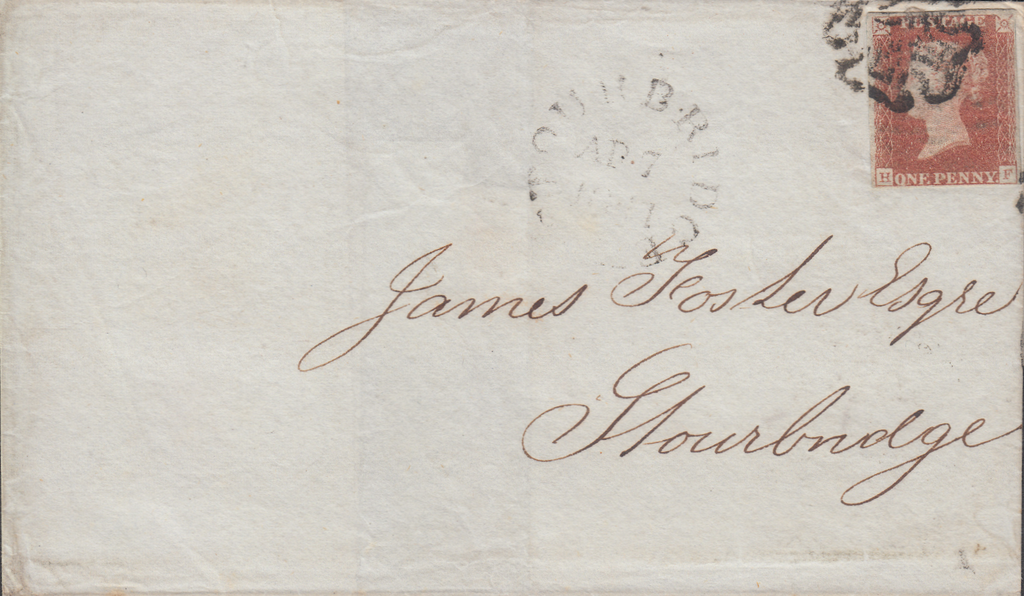 POSTAGE
H ONE PENNY F
STOURBRIDGE
AP 7
James Foster Esqre
Stourbridge